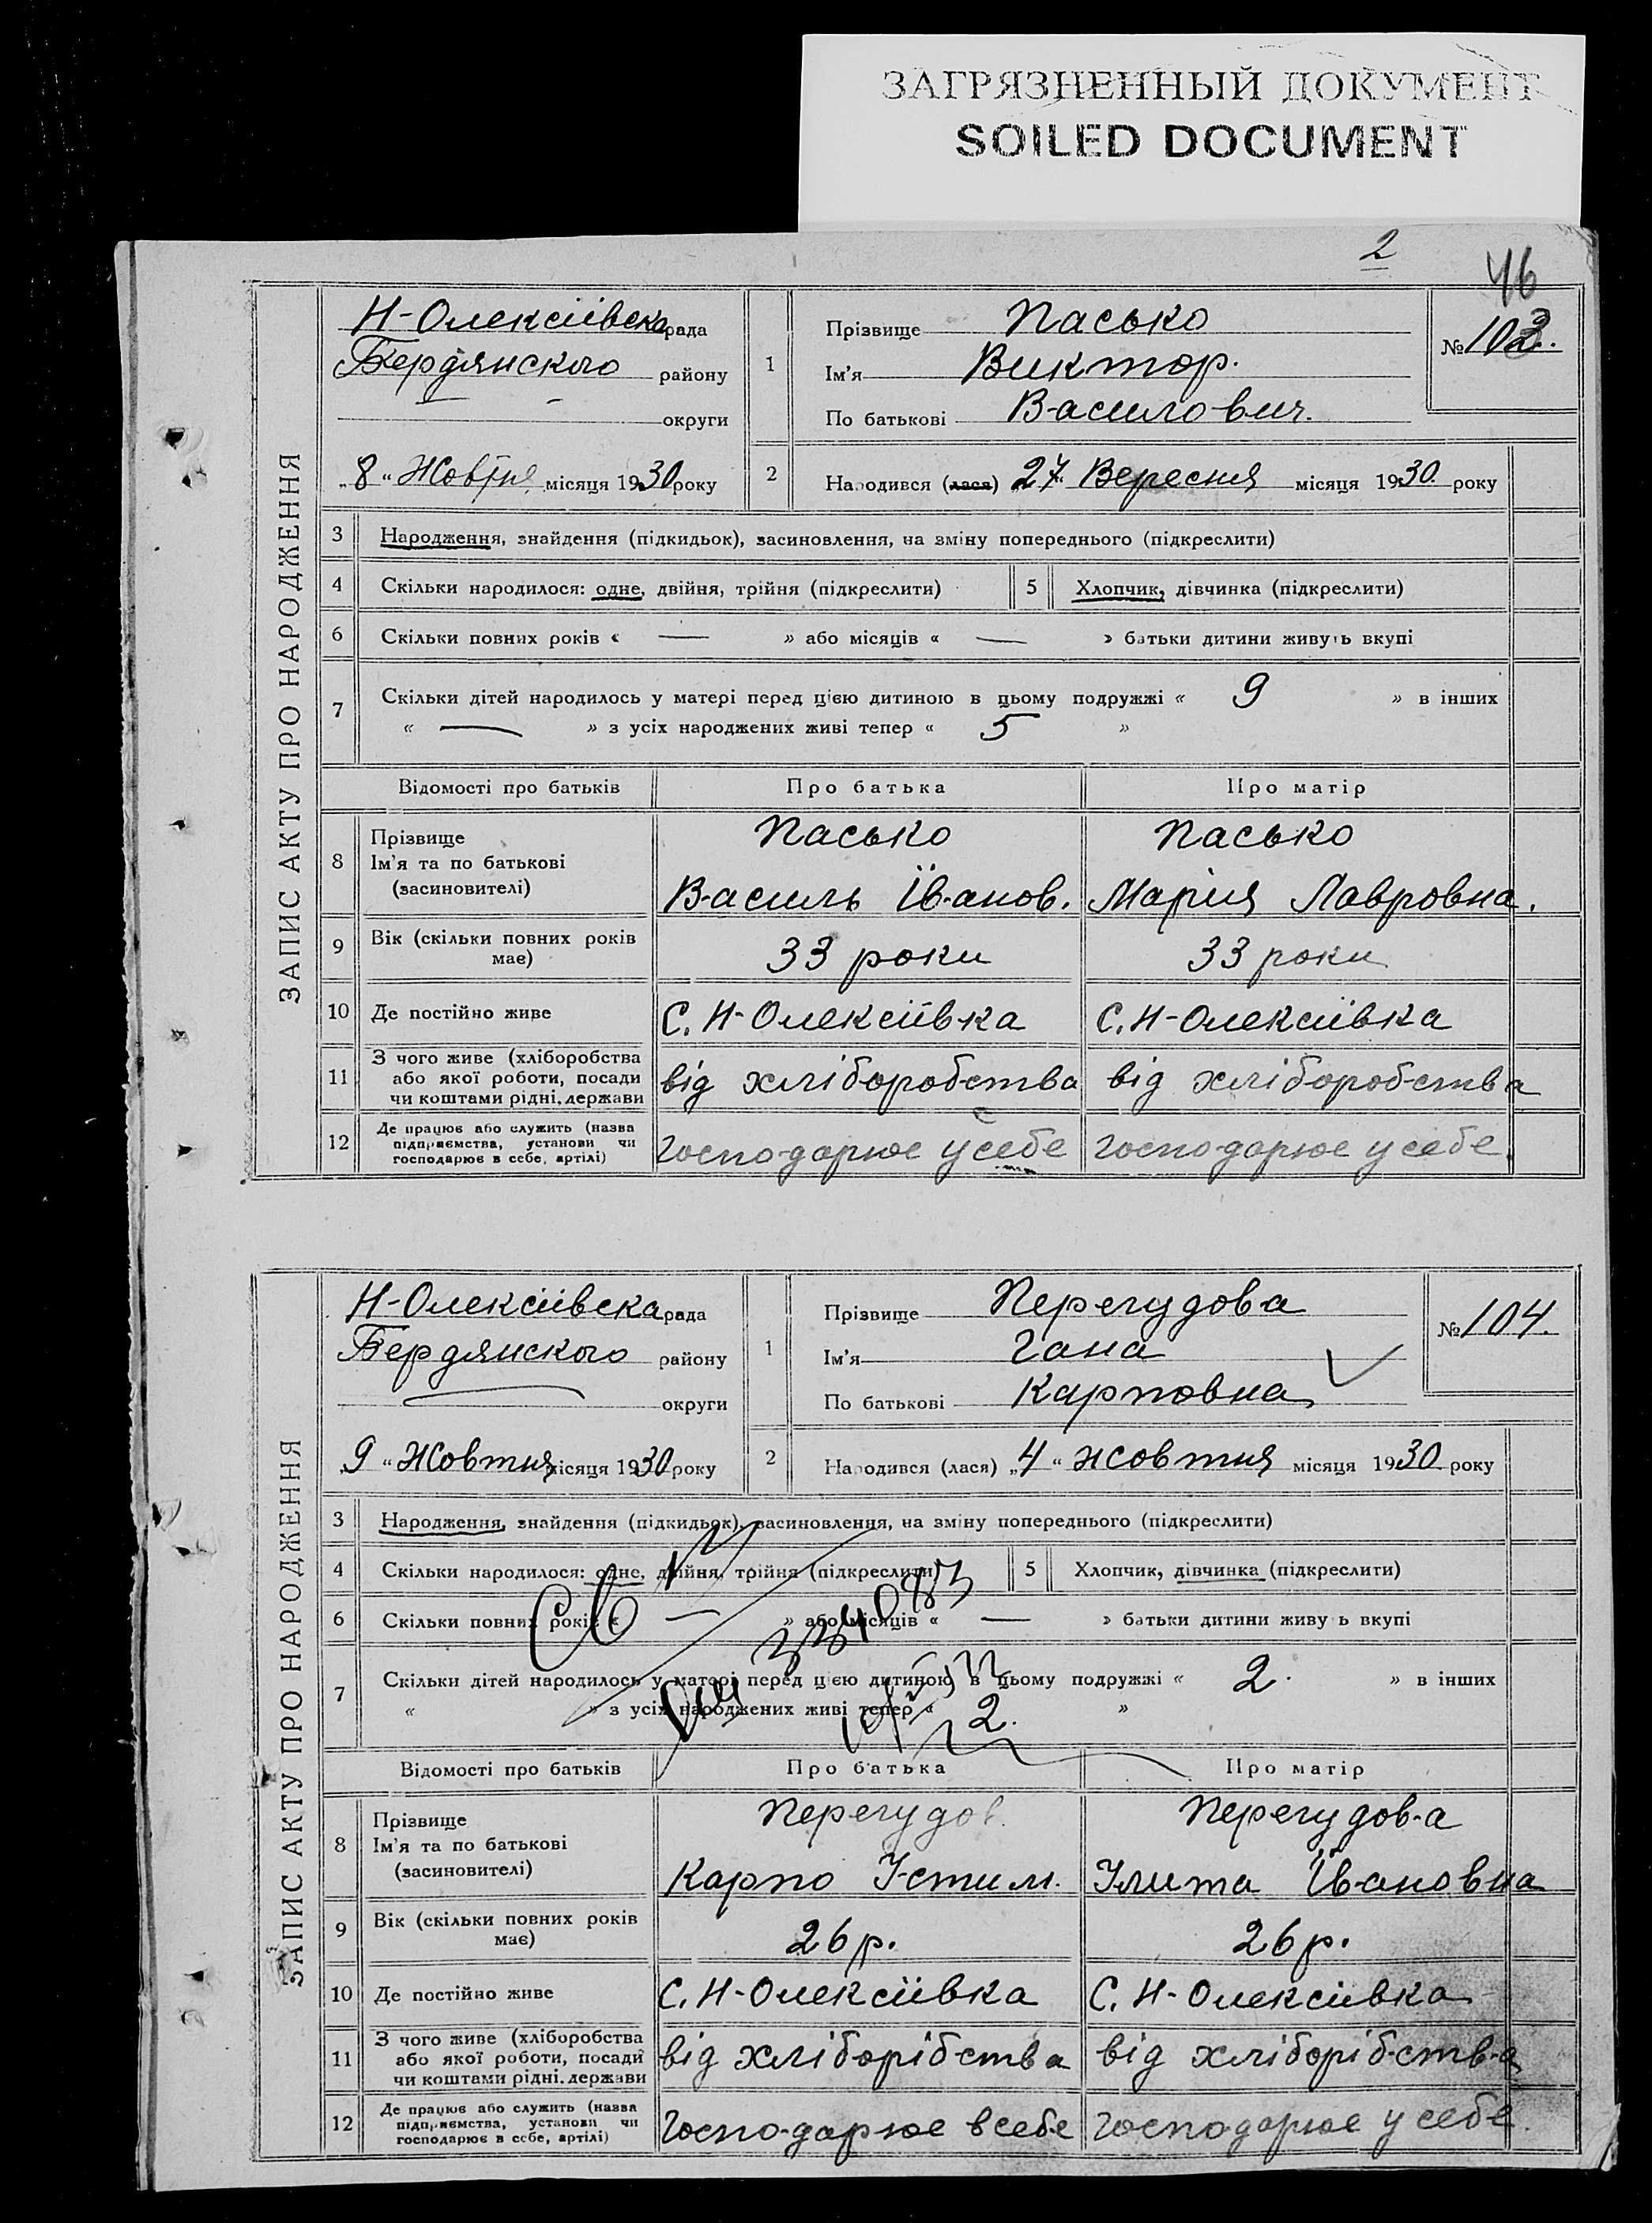 ЗАГРЯЗНЕННЫЙ ДОКУМЕНТ
SOILED DOCUMENT
2
46
ЗАПИС АКТУ ПРО НАРОДЖЕННЯ
Н-Олексіївска рада
Бердянского району
округи
„8“ Жовтня місяця 1930 року
1
Прізвище Пасько
Ім'я Виктор.
По батькові Василович.
№ 103.
2
Народився (лася) 27 „Вересня місяця 1930. року
3 Народження, знайдення (підкидьок), засиновлення, на зміну попереднього (підкреслити)
4 Скільки народилося: одне, двійня, трійня (підкреслити) 5 Хлопчик, дівчинка (підкреслити)
6 Скільки повних років « — » або місяців « — » батьки дитини живуть вкупі
7 Скільки дітей народилось у матері перед цією дитиною в цьому подружжі « 9 » в інших
« — » з усіх народжених живі тепер « 5 »
Відомості про батьків Про батька Про матір
8 Прізвище
Ім'я та по батькові
(засиновителі)
Пасько
Василь Іванов.
Пасько
Мария Лавровна.
9 Вік (скільки повних років
має)
33 роки 33 роки
10 Де постійно живе С. Н-Олексіївка С. Н-Олексіївка
11 З чого живе (хліборобства
або якої роботи, посади
чи коштами рідні, держави
від хліборобства від хліборобства
12 Де працює або служить (назва
підприємства, установи чи
господарює в себе, артілі)
господарює у себе господарює у себе.
ЗАПИС АКТУ ПРО НАРОДЖЕННЯ
Н-Олексіївска рада
Бердянского району
округи
„9“ Жовтня місяця 1930 року
1
Прізвище Перегудова
Ім'я Гана
По батькові Карповна
№ 104.
2
Народився (лася) „4“ жовтня місяця 1930 року
3 Народження, знайдення (підкидьок), засиновлення, на зміну попереднього (підкреслити)
4 Скільки народилося: одне, двійня, трійня (підкреслити) 5 Хлопчик, дівчинка (підкреслити)
6 Скільки повних років « — » або місяців « — » батьки дитини живуть вкупі
7 Скільки дітей народилось у матері перед цією дитиною в цьому подружжі « 2. » в інших
« » з усіх народжених живі тепер « 2. »
Відомості про батьків Про батька Про матір
8 Прізвище
Ім'я та по батькові
(засиновителі)
Перегудов.
Карпо Устим.
Перегудова
Улита Івановна
9 Вік (скільки повних років
має)
26 р. 26 р.
10 Де постійно живе С. Н-Олексіївка С. Н-Олексіївка
11 З чого живе (хліборобства
або якої роботи, посади
чи коштами рідні, держави
від хліборібства від хліборібства
12 Де працює або служить (назва
підприємства, установи чи
господарює в себе, артілі)
господарює в себе господарює у себе.